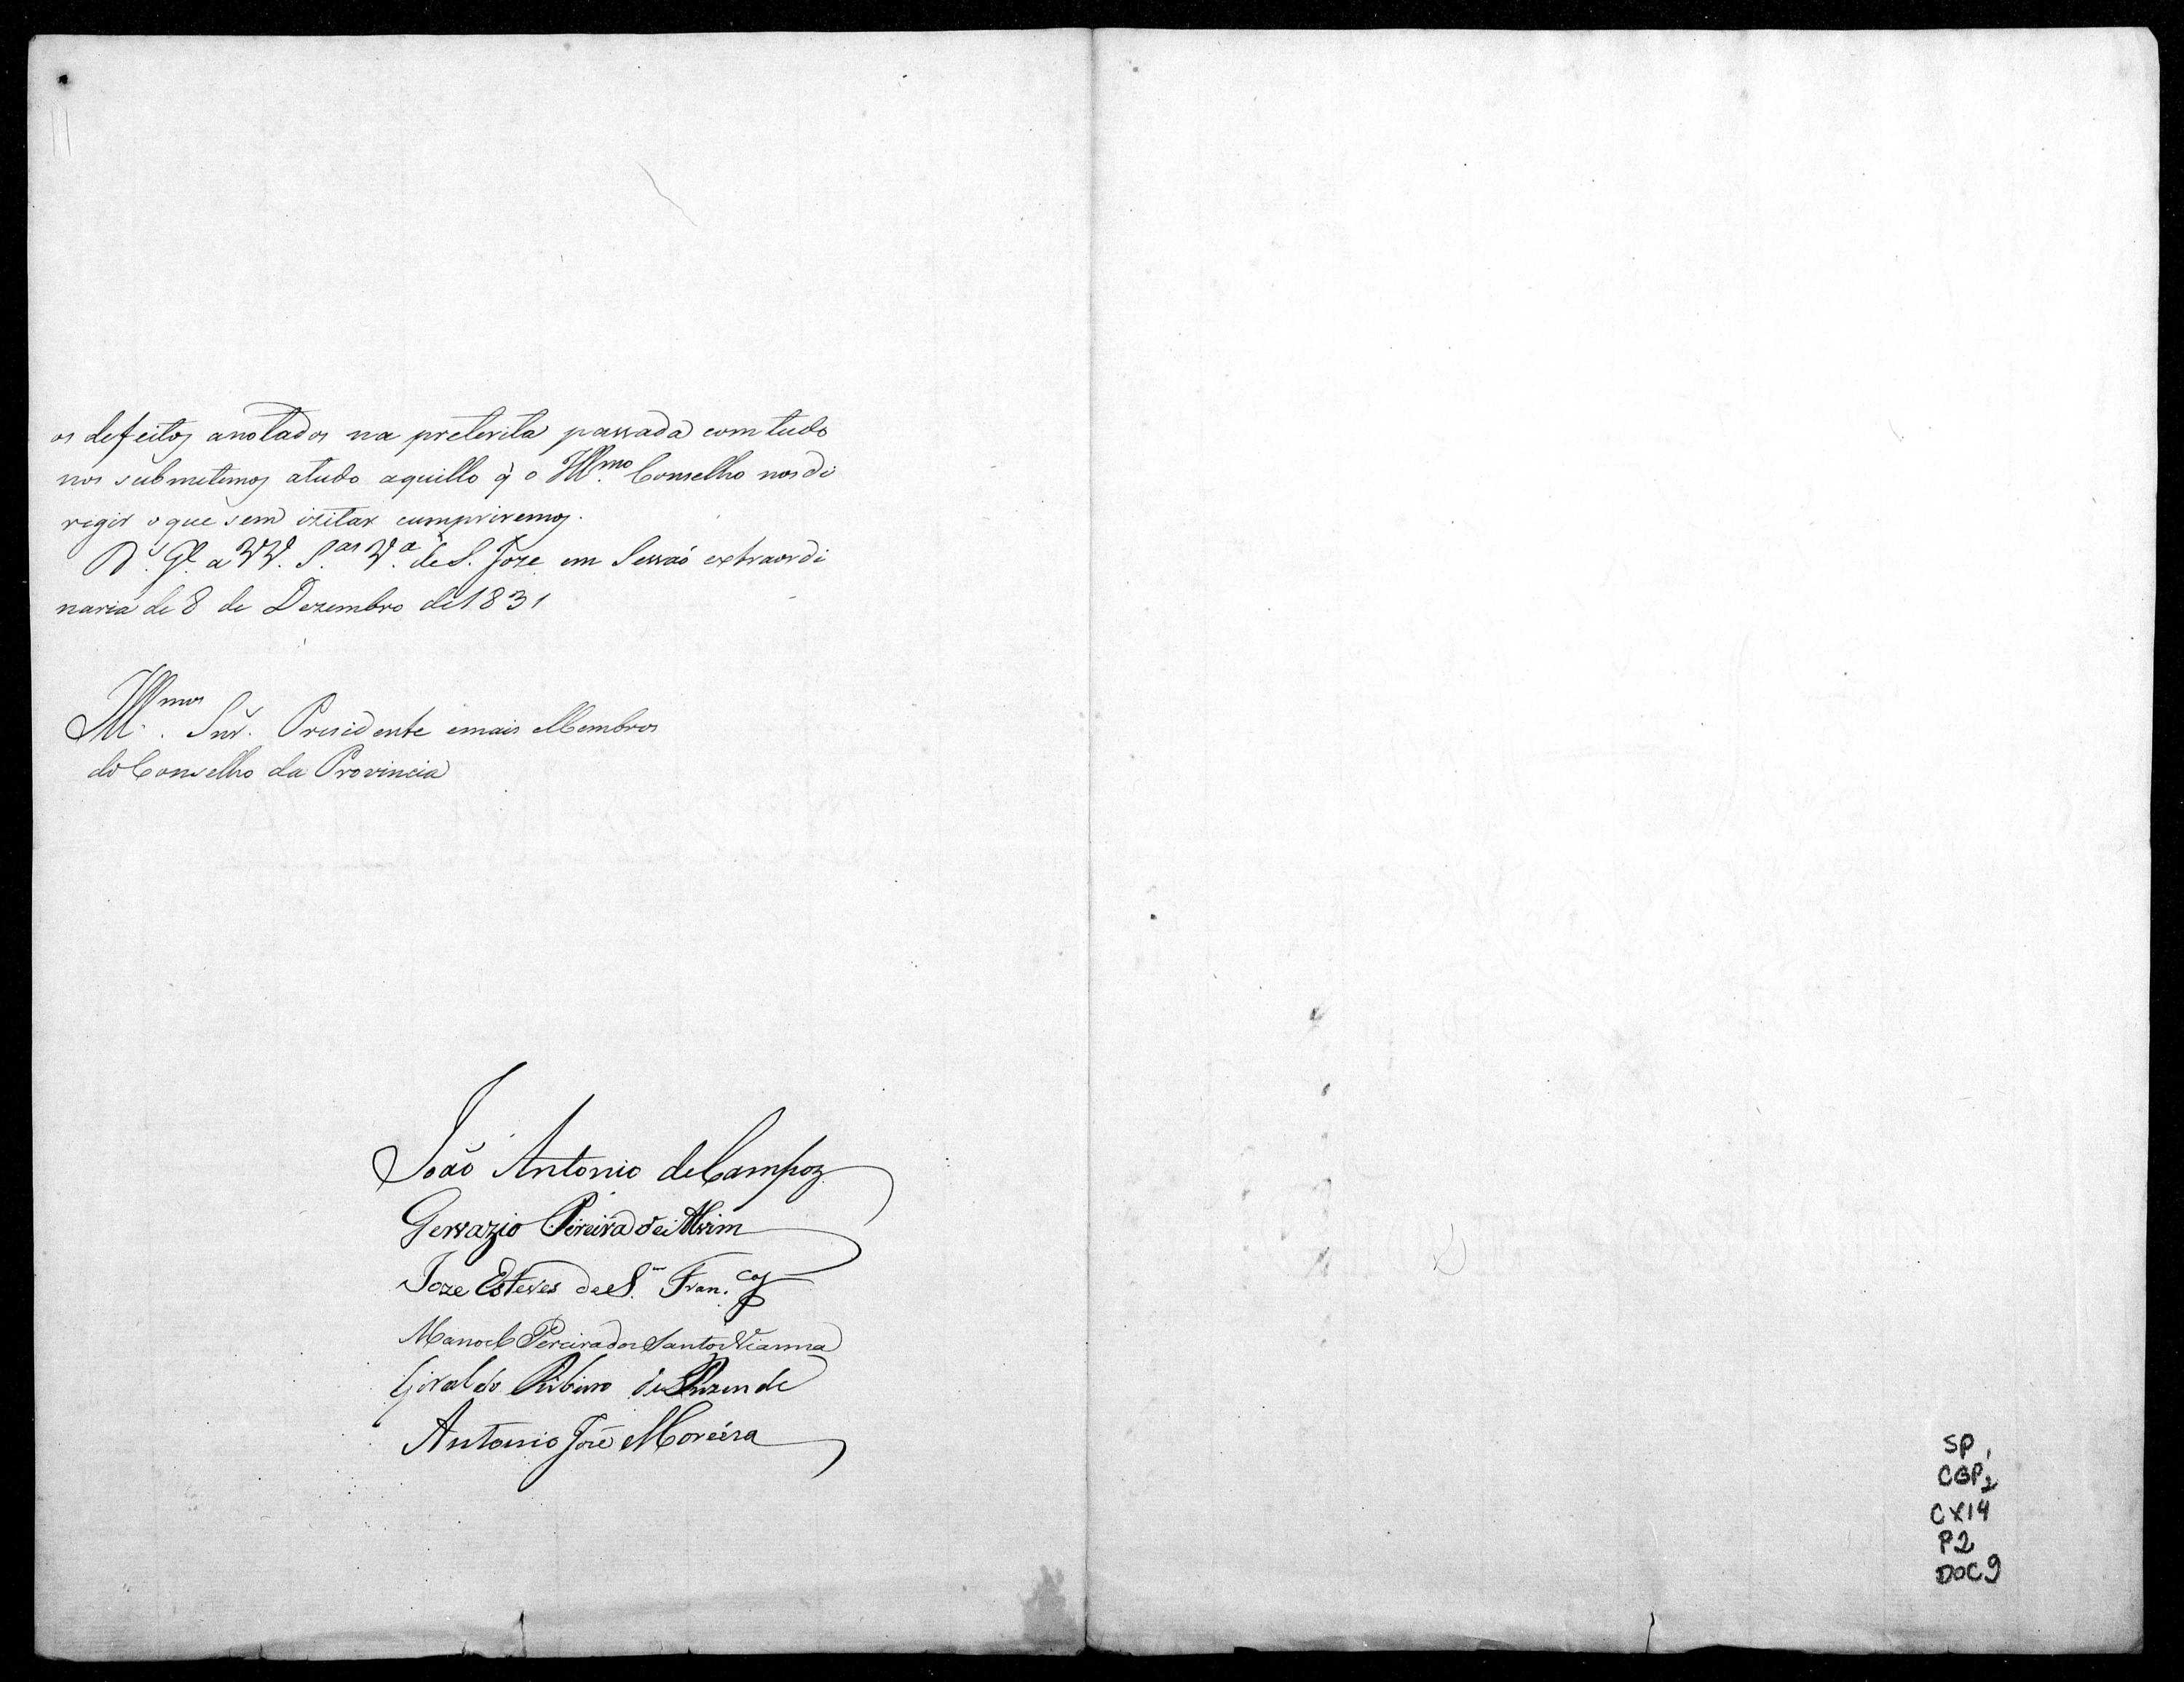 os defeitos anotados na preterita passada com tudo
nos submetemos atudo aquillo q̃ o Ill.mo Conselho nos di
rigir o que sem izitar cumpriremos.
D.s G.e a VV. S.as V.a de S. Joze em Sessaõ extraordi
naria de 8 de Dezembro de 1831
Ill.mos Snr. Presidente emais Membros
do Conselho da Provincia
João Antonio de Campos
Gervazio Pereira de Alvim
Joze Esteves de S. Fran.cos
Manoel Pereira dos Santos Vianna
Giraldo Ribeiro de Rezende
Antonio José Moreira
SP
CGP2
CX14
P2
DOC9